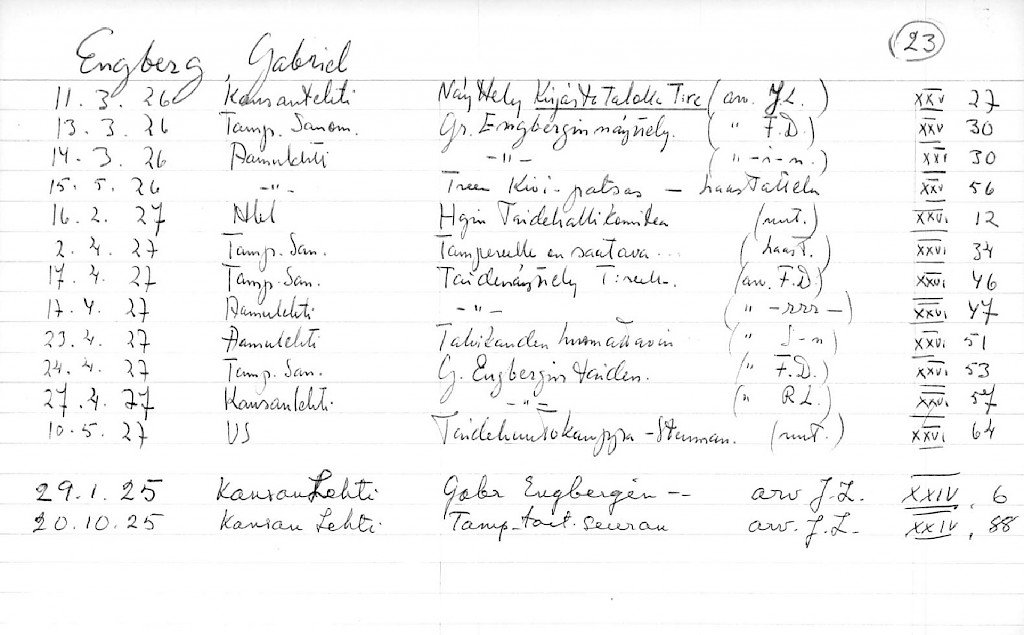 (23)
Engberg, Gabriel
11.3.26 Kansanlehti Näyttely Kirjasto Talolla Tre (arv. J.L.) XXV 27
13.3.26 Tamp. Sanom. Gr. Engbergin näyttely. ( " F.D.) XXV 30
14.3.26 Aamulehti -"- ( " -i-n.) XXV 30
15.5.26 -"- Treen Kivi-patsas - haastattelu XXV 56
16.2.27 Hgin Taidehallikomitea (nimit.) XXVI 12
2.4.27 Tamp. San. Tampereelle on saatava... (haast.) XXVI 34
17.4.27 Tamp. San. Taidenäyttely T:reella. (arv. F.D.) XXVI 46
17.4.27 Aamulehti -"- ( " -rrr-) XXVI 47
23.4.27 Aamulehti ( " S-n) XXVI 51
24.4.27 Tamp. San. G. Engbergin taiden. ( " F.D.) XXVI 53
27.4.27 Kansanlehti. -"- ( " R.L.) XXVI 57
10.5.27 US (nimit.) XXVI 64
29.1.25 Kansan Lehti Gabr Engbergin -- arv J.L. XXIV, 6
20.10.25 Kansan Lehti Tamp-tait. seuran arv. J.L. XXIV, 88